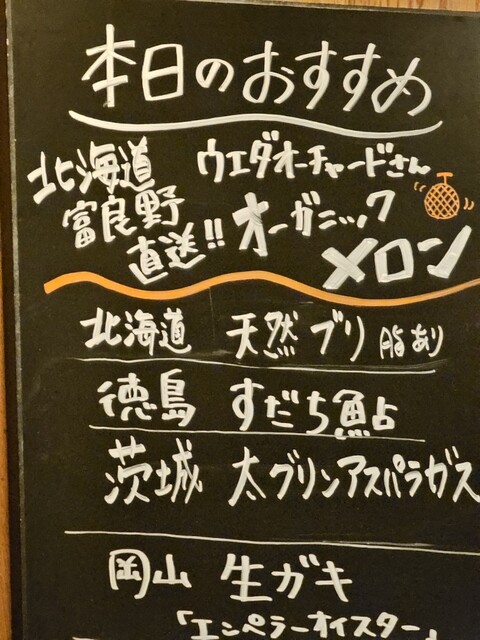 本日のおすすめ
北海道
富良野
直送!!
ウエダオーチャードさん
オーガニック
メロン
北海道 天然ブリ 脂あり
徳島 すだち鮎
茨城 太グリンアスパラガス
岡山 生ガキ
「エンペラーオイスター」